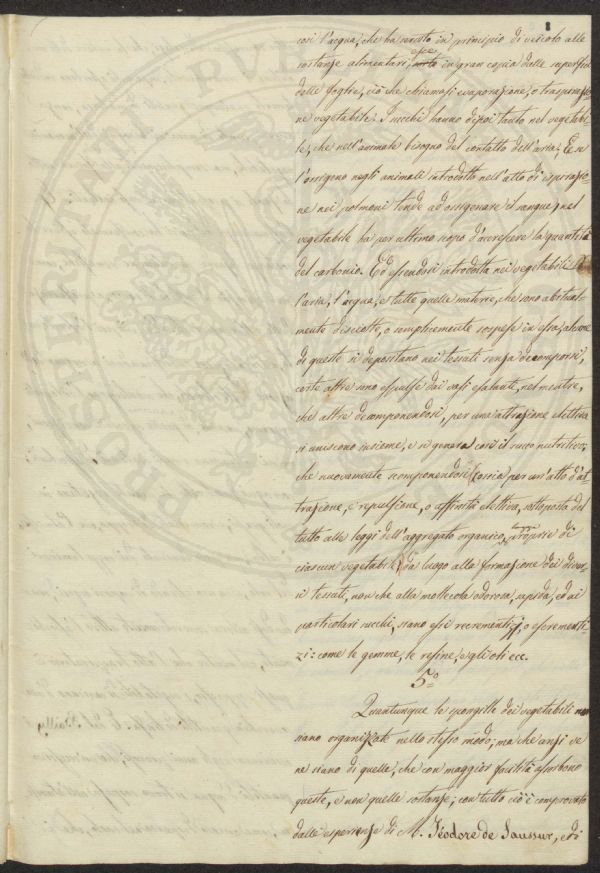 8
così l'acqua, che ha servito in principio di veicolo alle
sostanze alimentari, esce in gran copia dalle superficie
delle foglie, ciò che chiamasi evaporazione, o traspirazio-
ne vegetabile. I succhi hanno dipoi tanto nel vegetabi-
le, che nell'animale bisogno del contatto dell'aria; E se
l'ossigeno negli animali introdotto nell'atto di ispirazio-
ne nei polmoni tende ad ossigenare il sangue, nel
vegetabile ha per ultimo scopo d'accrescere la quantità
del carbonio. Ed essendosi introdotta nei vegetabili
l'aria, l'acqua, e tutte quelle materie, che sono abitual-
mente disciolte, o semplicemente sospese in essa, alcune
di queste si depositano nei tessuti senza decomporsi,
certe altre sono espulse dai vasi esalanti, nel mentre,
che altre decomponendosi, per una attrazione elettiva
si uniscono insieme, e si genera così il succo nutritivo;
che nuovamente scomponendosi (ossia per un'atto d'at-
trazione, e repulsione, o affinità elettiva, sottoposta del
tutto alle leggi dell'aggregato organico, proprie di
ciascun vegetabile) dà luogo alla formazione dei diver-
si tessuti, non che alla mollecola odorosa, sapida, ed ai
particolari succhi, siano essi recrementizj, o escrementi-
zi: come le gomme, le resine, e gli oli ecc.
5.°
Quantunque le spongille dei vegetabili non
siano organizzate nello stesso modo; ma che anzi ve
ne siano di quelle, che con maggior facilità assorbono
queste, e non quelle sostanze; con tutto ciò è comprovato
dalle esperienze di M. Teodore de Saussur, e di